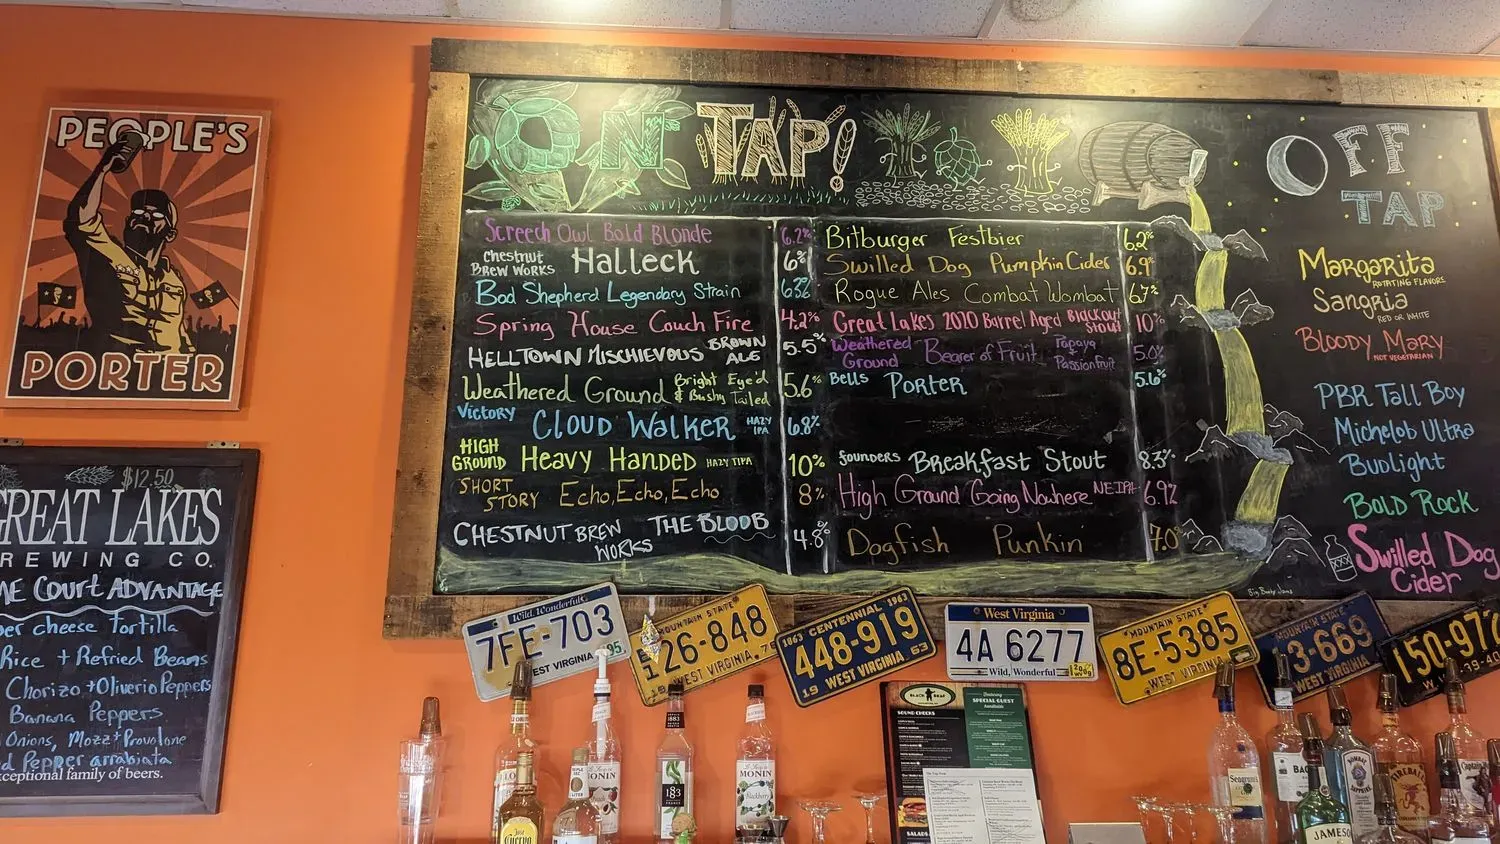 PEOPLE'S
PORTER
$12.50
GREAT LAKES
BREWING CO.
Court ADVANTAGE
cheese tortilla
Rice + Refried Beans
Chorizo + Oliverio Peppers
Banana Peppers
Onions, Mozz + Provolone
Pepper arrabiata
exceptional family of beers.
ON TAP!
Screech Owl Bold Blonde 6.2%
Chestnut BREW WORKS Halleck 6%
Bad Shepherd Legendary Strain 6.3%
Spring House Couch Fire 4.2%
HELLTOWN MISCHIEVOUS BROWN ALE 5.5%
Weathered Ground Bright Eye'd & Bushy Tailed 5.6%
Victory CLOUD WALKER HAZY IPA 6.8%
HIGH GROUND Heavy Handed HAZY TIPA 10%
SHORT STORY Echo, Echo, Echo 8%
CHESTNUT BREW WORKS THE BLOOB 4.8%
Bitburger Festbier 6.2%
Swilled Dog Pumpkin Cider 6.9%
Rogue Ales Combat Wombat 6.7%
Great Lakes 2020 Barrel Aged Blackout Stout 10%
Weathered Ground Bearer of Fruit Papaya + Passionfruit 5.0%
Bells Porter 5.6%
founders Breakfast Stout 8.3%
High Ground Going Nowhere NEIPA 6.9%
Dogfish Punkin' 7.0%
OFF
TAP
Margarita
ROTATING FLAVORS
Sangria
RED OR WHITE
Bloody Mary
NOT VEGETARIAN
PBR Tall Boy
Michelob Ultra
Budlight
BOLD ROCK
Swilled Dog
Cider
XXX
Wild, Wonderful
7FE-703
95
WEST VIRGINIA
MOUNTAIN STATE
126-848
WEST VIRGINIA
1863 CENTENNIAL 1963
448-919
19 WEST VIRGINIA 63
West Virginia
4A 6277
Wild, Wonderful
MOUNTAIN STATE
8E-5385
WEST VIRGINIA
MOUNTAIN STATE
3-669
WEST VIRGINIA
150-97
BLACK BEAR
SOUND CHECKS
SPECIAL GUEST
SALADS
MONIN
1883
MONIN
Blackberry
Cuervo
Seagram's
BOMBAY
JAMESON
FIREBALL
Captain